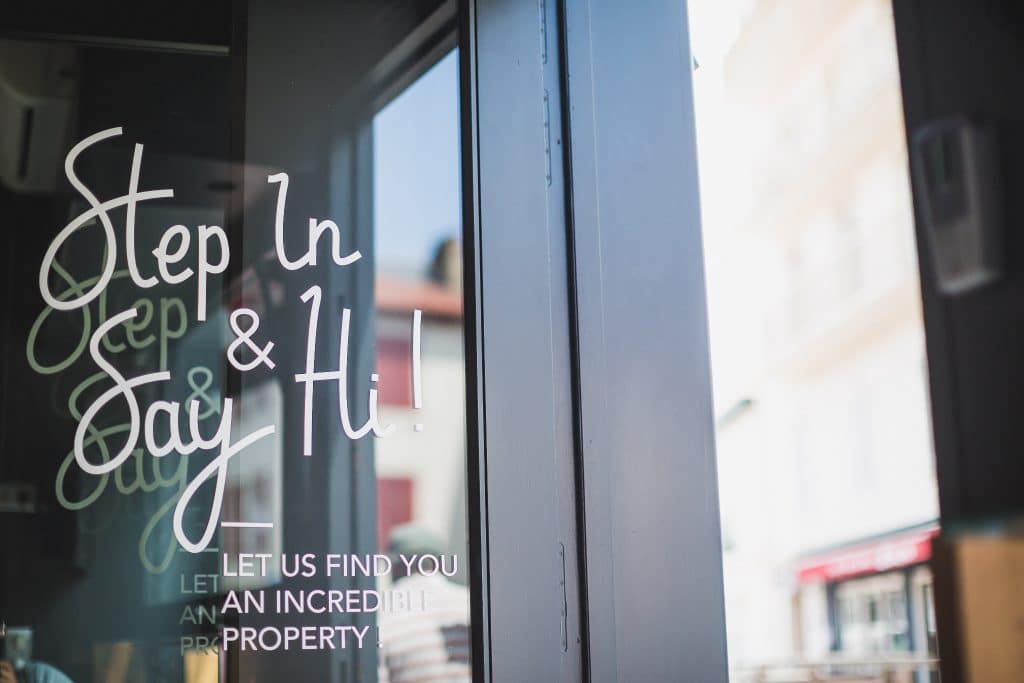 Step In
& 
Say Hi!
LET US FIND YOU
AN INCREDIBLE
PROPERTY!